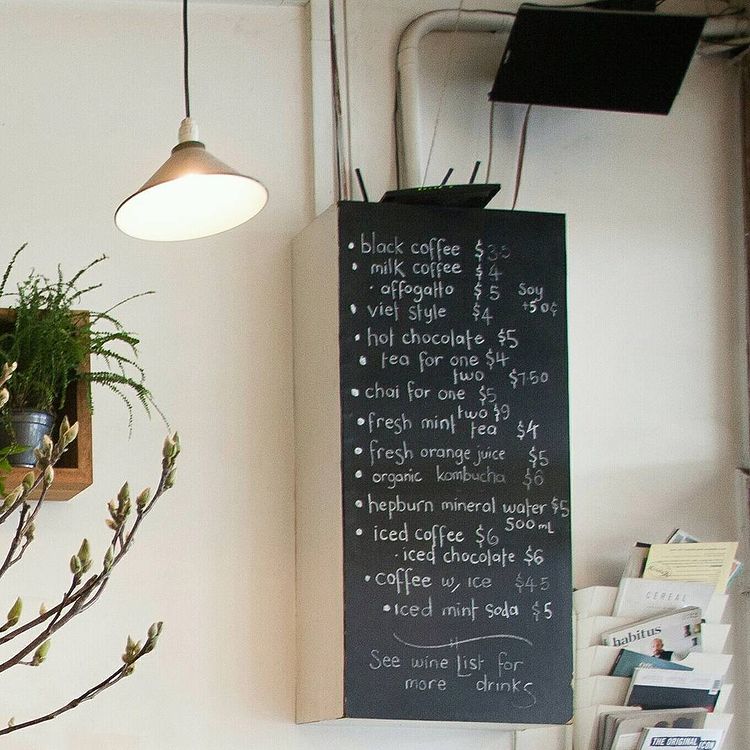 • black coffee $3.5
• milk coffee $4
• affogatto $5 Soy
+50¢
• viet style $4
• hot chocolate $5
• tea for one $4
two $7.50
• chai for one $5
two $9
• fresh mint tea $4
• fresh orange juice $5
• organic kombucha $6
• hepburn mineral water $5
500mL
• iced coffee $6
• iced chocolate $6
• coffee w/ ice $4.5
• iced mint soda $5
See wine List for
more drinks
CEREAL
habitus
THE ORIGINAL
ICON